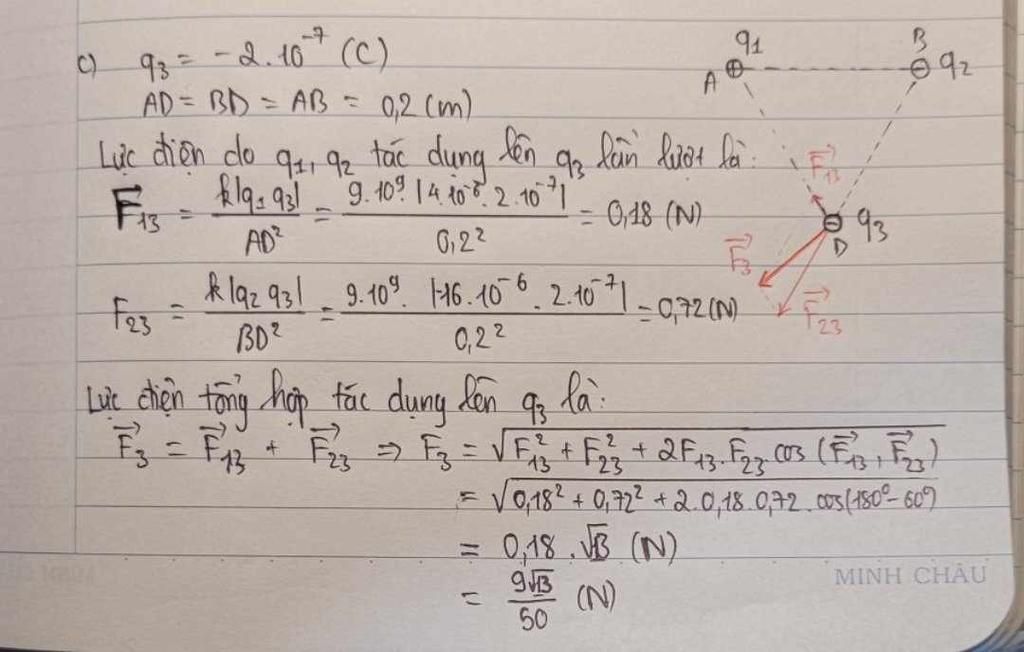 c) q₃ = -2.10⁻⁷ (C)
AD = BD = AB = 0,2 (m)
Lực điện do q₁, q₂ tác dụng lên q₃ lần lượt là:
F⃗₁₃ = k|q₁ q₃| / AD² = 9.10⁹. |4.10⁻⁶. 2.10⁻⁷| / 0,2² = 0,18 (N)
F₂₃ = k|q₂ q₃| / BD² = 9.10⁹. |-16.10⁻⁶. 2.10⁻⁷| / 0,2² = 0,72 (N)
Lực điện tổng hợp tác dụng lên q₃ là:
F⃗₃ = F⃗₁₃ + F⃗₂₃ ⇒ F₃ = √(F₁₃² + F₂₃² + 2F₁₃.F₂₃ cos (F⃗₁₃, F⃗₂₃))
= √(0,18² + 0,72² + 2.0,18.0,72.cos(180⁰-60⁰))
= 0,18.√13 (N)
= 9√13 / 50 (N)
q₁
B
A
q₂
F⃗₁₃
q₃
D
F⃗₃
F⃗₂₃
MINH CHÂU